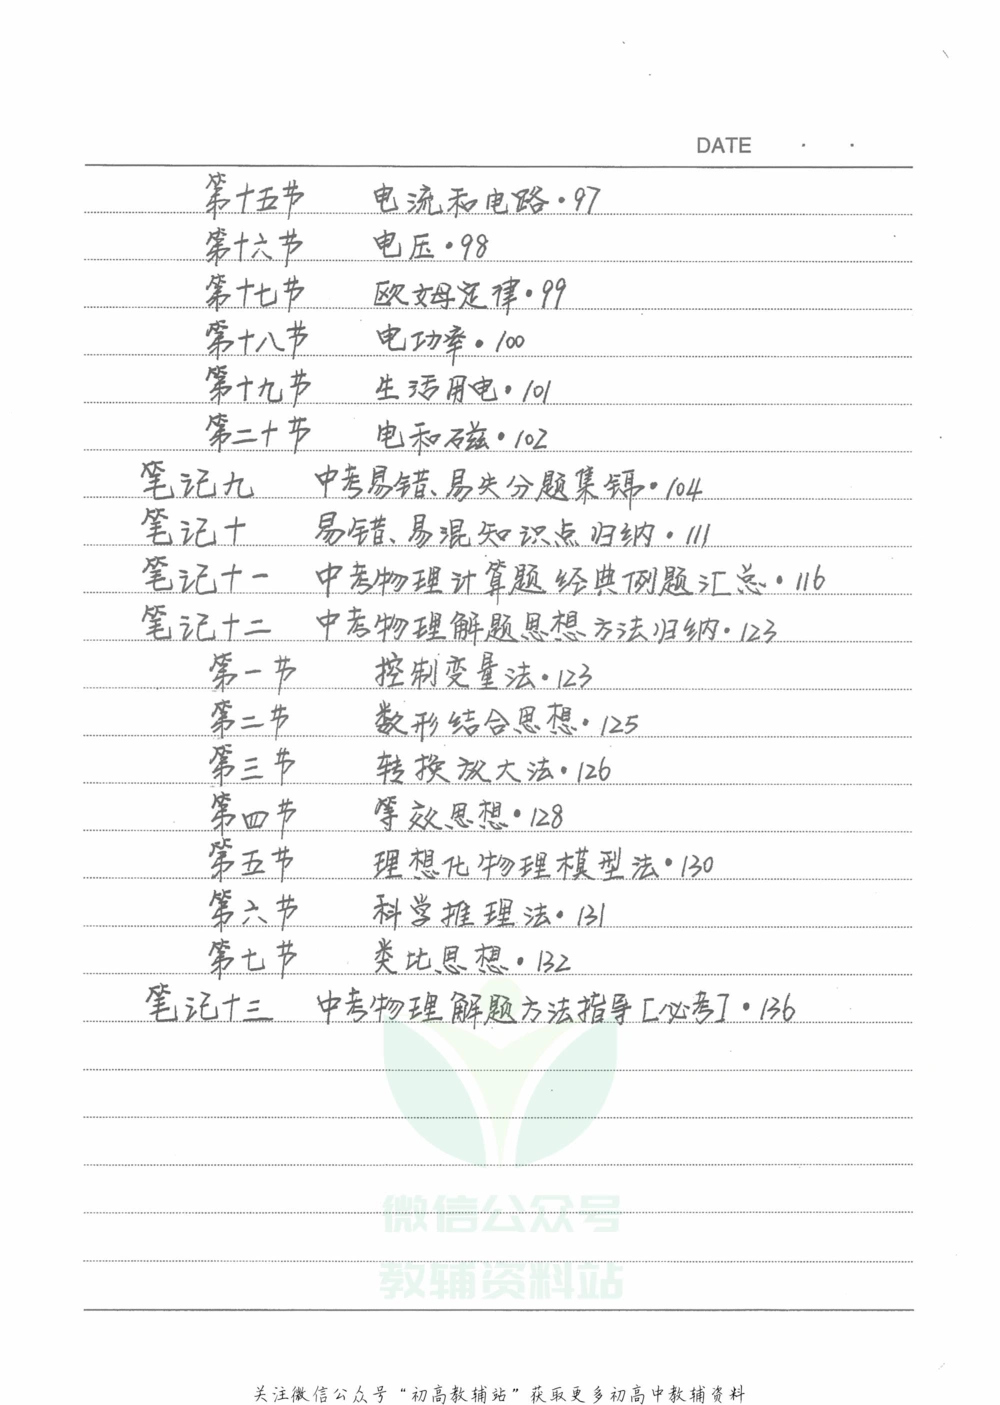 DATE · ·
第十五节 电流和电路·97
第十六节 电压·98
第十七节 欧姆定律·99
第十八节 电功率·100
第十九节 生活用电·101
第二十节 电和磁·102
笔记九 中考易错、易失分题集锦·104
笔记十 易错、易混知识点归纳·111
笔记十一 中考物理计算题经典例题汇总·116
笔记十二 中考物理解题思想方法归纳·123
第一节 控制变量法·123
第二节 数形结合思想·125
第三节 转换放大法·126
第四节 等效思想·128
第五节 理想化物理模型法·130
第六节 科学推理法·131
第七节 类比思想·132
笔记十三 中考物理解题方法指导[必考]·136
微信公众号
教辅资料站
关注微信公众号“初高教辅站”获取更多初高中教辅资料